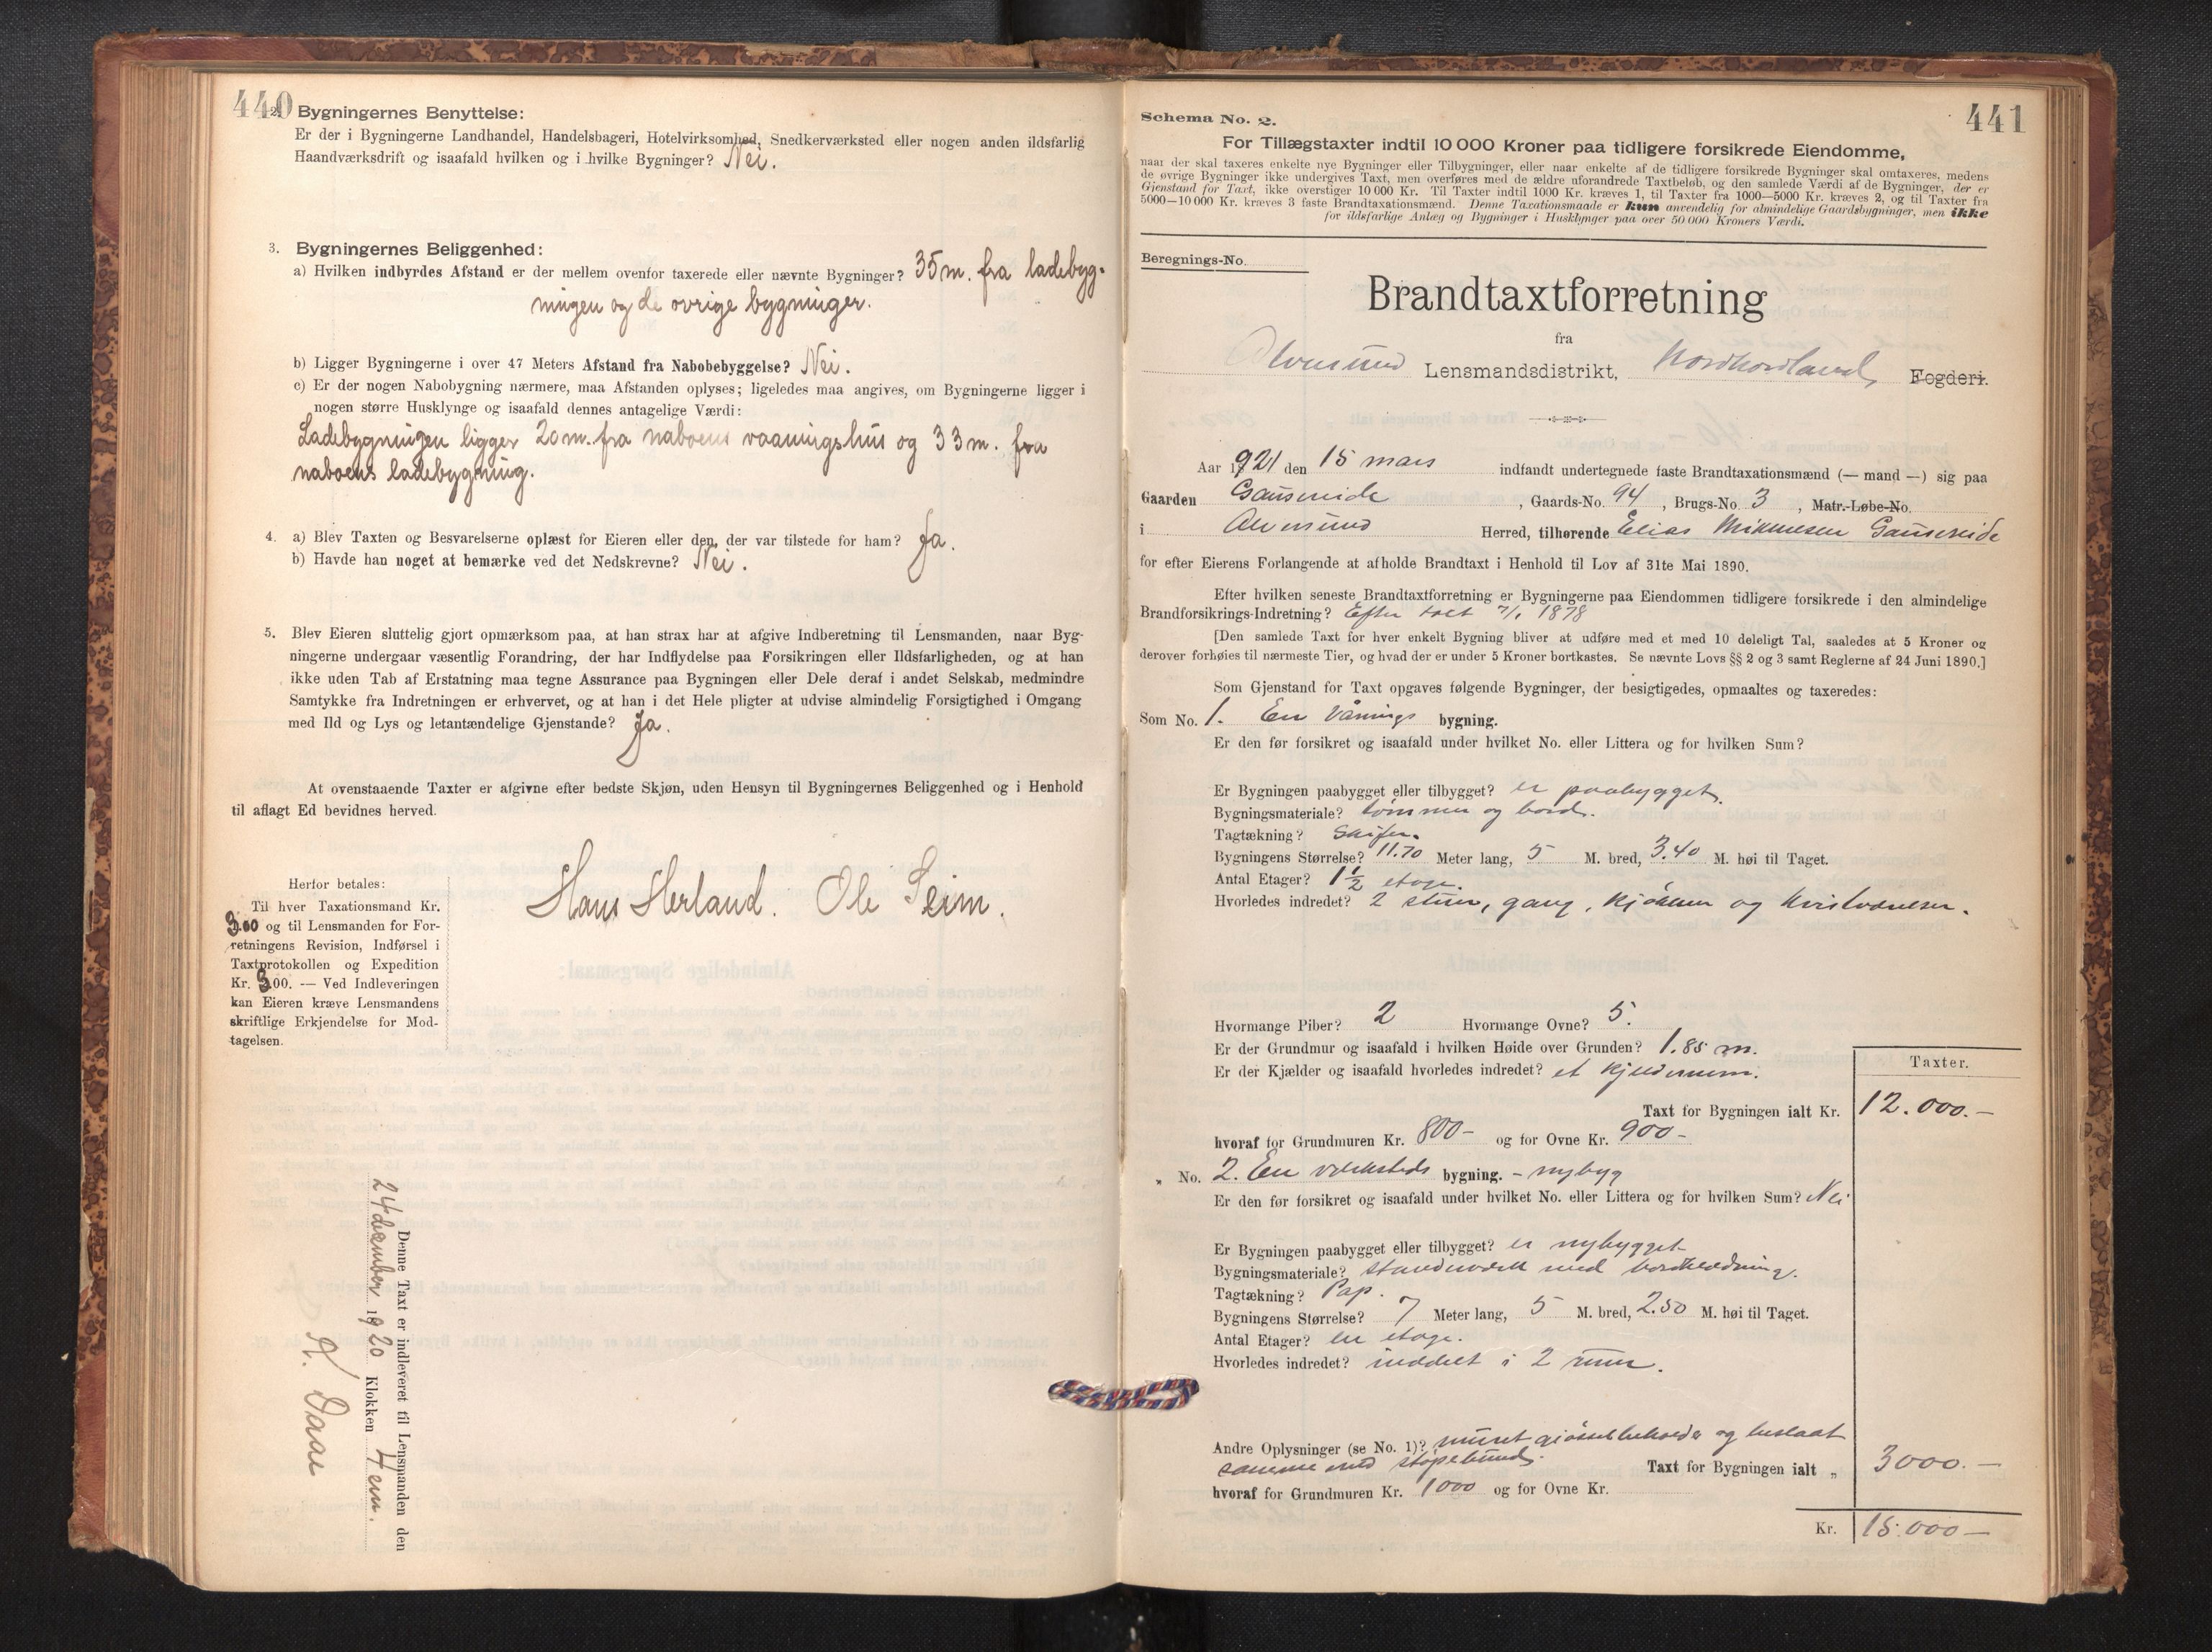 440
2. Bygningernes Benyttelse:
Er der i Bygningerne Landhandel, Handelsbageri, Hotelvirksomhed, Snedkerværksted eller nogen anden ildsfarlig
Haandværksdrift og isaafald hvilken og i hvilke Bygninger? Nei.
3. Bygningernes Beliggenhed:
a) Hvilken indbyrdes Afstand er der mellem ovenfor taxerede eller nævnte Bygninger? 35 m. fra ladebyg-
ningen og de øvrige bygninger.
b) Ligger Bygningerne i over 47 Meters Afstand fra Nabobebyggelse? Nei.
c) Er der nogen Nabobygning nærmere, maa Afstanden oplyses; ligeledes maa angives, om Bygningerne ligger i
nogen større Husklynge og isaafald dennes antagelige Værdi:
Ladebygningen ligger 20 m. fra naboens vaaningshus og 33 m. fra
naboens ladebygning.
4. a) Blev Taxten og Besvarelserne oplæst for Eieren eller den, der var tilstede for ham? Ja.
b) Havde han noget at bemærke ved det Nedskrevne? Nei.
5. Blev Eieren sluttelig gjort opmærksom paa, at han strax har at afgive Indberetning til Lensmanden, naar Byg-
ningerne undergaar væsentlig Forandring, der har Indflydelse paa Forsikringen eller Ildsfarligheden, og at han
ikke uden Tab af Erstatning maa tegne Assurance paa Bygningen eller Dele deraf i andet Selskab, medmindre
Samtykke fra Indretningen er erhvervet, og at han i det Hele pligter at udvise almindelig Forsigtighed i Omgang
med Ild og Lys og letantændelige Gjenstande? Ja.
At ovenstaaende Taxter er afgivne efter bedste Skjøn, uden Hensyn til Bygningernes Beliggenhed og i Henhold
til aflagt Ed bevidnes herved.
Hans Herland. Ole Seim.
Herfor betales:
Til hver Taxationsmand Kr.
3.00 og til Lensmanden for For-
retningens Revision, Indførsel i
Taxtprotokollen og Expedition
Kr. 3.00. — Ved Indleveringen
kan Eieren kræve Lensmandens
skriftlige Erkjendelse for Mod-
tagelsen.
Denne Taxt er indleveret til Lensmanden den
24 december 1920 Klokken 4 em.
Daae
441
Schema No. 2.
For Tillægstaxter indtil 10 000 Kroner paa tidligere forsikrede Eiendomme,
naar der skal taxeres enkelte nye Bygninger eller Tilbygninger, eller naar enkelte af de tidligere forsikrede Bygninger skal omtaxeres, medens
de øvrige Bygninger ikke undergives Taxt, men overføres med de ældre uforandrede Taxtbeløb, og den samlede Værdi af de Bygninger, der er
Gjenstand for Taxt, ikke overstiger 10 000 Kr. Til Taxter indtil 1000 Kr. kræves 1, til Taxter fra 1000—5000 Kr. kræves 2, og til Taxter fra
5000—10 000 Kr. kræves 3 faste Brandtaxationsmænd. Denne Taxationsmaade er kun anvendelig for almindelige Gaardsbygninger, men ikke
for ildsfarlige Anlæg og Bygninger i Husklynger paa over 50 000 Kroners Værdi.
Beregnings-No.
Brandtaxtforretning
fra
Alversund Lensmandsdistrikt, Nordhordland Fogderi.
Aar 1921 den 15 mars indfandt undertegnede faste Brandtaxationsmænd (— mand —) sig paa
Gaarden Gausereide, Gaards-No. 94, Brugs-No. 3, Matr.-Løbe-No.
i Alversund Herred, tilhørende Elias Mikkelsen Gausereide
for efter Eierens Forlangende at afholde Brandtaxt i Henhold til Lov af 31te Mai 1890.
Efter hvilken seneste Brandtaxtforretning er Bygningerne paa Eiendommen tidligere forsikrede i den almindelige
Brandforsikrings-Indretning? Efter taxt 7/1 1878
[Den samlede Taxt for hver enkelt Bygning bliver at udføre med et med 10 deleligt Tal, saaledes at 5 Kroner og
derover forhøies til nærmeste Tier, og hvad der er under 5 Kroner bortkastes. Se nævnte Lovs §§ 2 og 3 samt Reglerne af 24 Juni 1890.]
Som Gjenstand for Taxt opgaves følgende Bygninger, der besigtigedes, opmaaltes og taxeredes:
Som No. 1. En Vånings bygning.
Er den før forsikret og isaafald under hvilket No. eller Littera og for hvilken Sum?
Er Bygningen paabygget eller tilbygget? er paabygget.
Bygningsmateriale? tømmer og bord.
Tagtækning? Skifer.
Bygningens Størrelse? 11.70 Meter lang, 5 M. bred, 3.40 M. høi til Taget.
Antal Etager? 1 1/2 etage.
Hvorledes indredet? 2 stuer, gang, kjøkken og kvistværelser.
Hvormange Piber? 2 Hvormange Ovne? 5.
Er der Grundmur og isaafald i hvilken Høide over Grunden? 1.85 m.
Er der Kjælder og isaafald hvorledes indredet? et kjelderrum.
Taxter.
Taxt for Bygningen ialt Kr. 12.000.—
hvoraf for Grundmuren Kr. 800- og for Ovne Kr. 900-
" No. 2. En verksteds bygning. – nybyg
Er den før forsikret og isaafald under hvilket No. eller Littera og for hvilken Sum? Nei
Er Bygningen paabygget eller tilbygget? er nybygget
Bygningsmateriale? standerverk med bordklædning.
Tagtækning? Pap.
Bygningens Størrelse? 7 Meter lang, 5 M. bred, 2.50 M. høi til Taget.
Antal Etager? en etage.
Hvorledes indredet? inddelt i 2 rum.
Andre Oplysninger (se No. 1)? muret gjødselbeholder og
samme med støpebund.
Taxt for Bygningen ialt „ 3000.—
hvoraf for Grundmuren Kr. 1000 og for Ovne Kr.
Kr. 15.000—